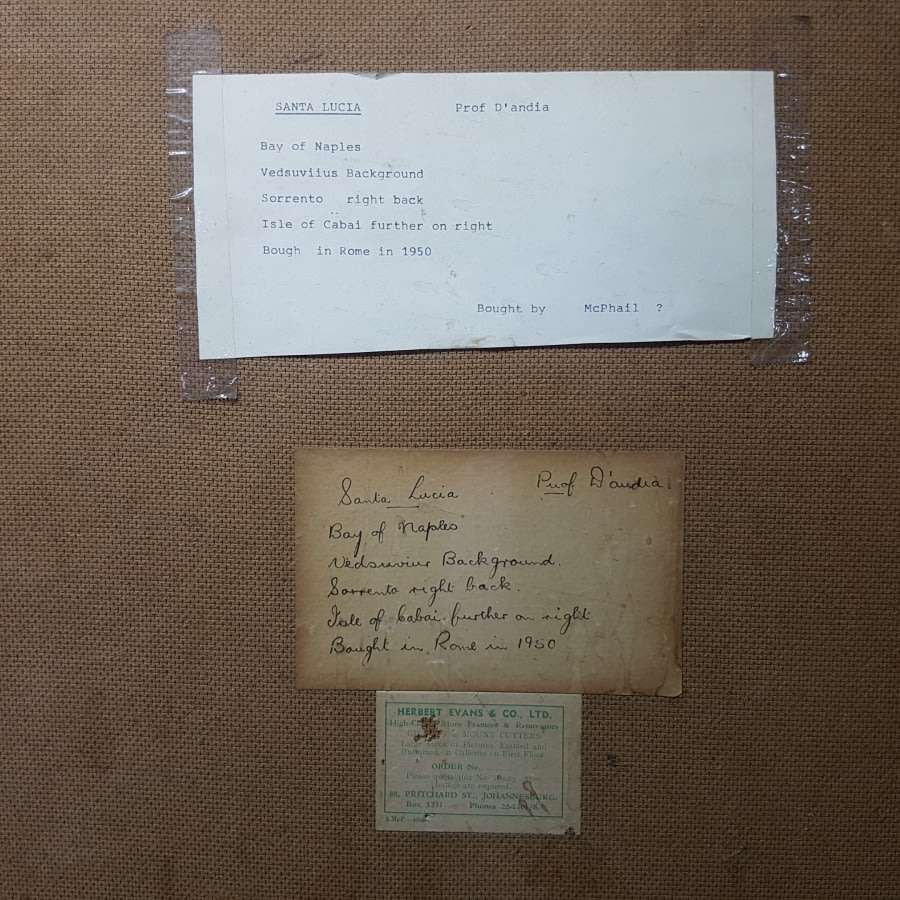 SANTA LUCIA Prof D'andia
Bay of Naples
Vedsuviius Background
Sorrento right back
Isle of Cabai further on right
Bough in Rome in 1950
Bought by McPhail ?
Santa Lucia Prof D'andia.
Bay of Naples
Vedsuvius Background.
Sorrento right back.
Isle of Cabai further on right
Bought in Rome in 1950
HERBERT EVANS & CO., LTD.
Picture Framers & Renovators
MOUNT CUTTERS
of Pictures, Etched and
in Galleries on First Floor
ORDER No.
Please quote this No. when
copies are required.
PRITCHARD ST., JOHANNESBURG.
Box Phones